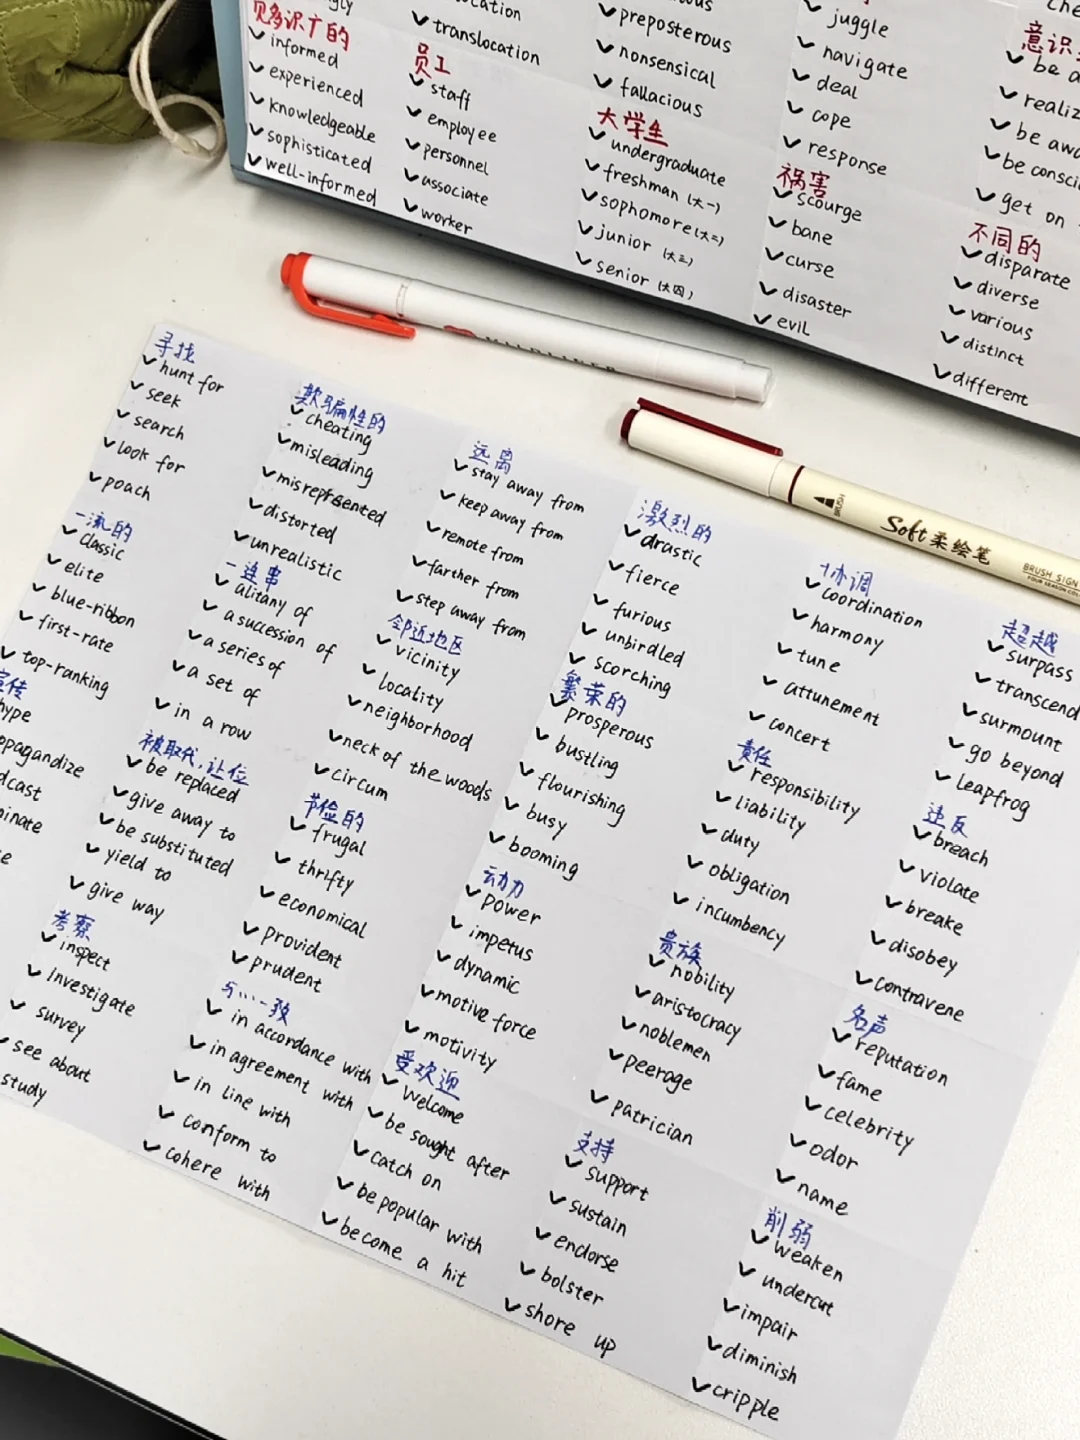 见多识广的
informed
experienced
knowledgeable
sophisticated
well-informed
translocation
员工
staff
employee
personnel
associate
worker
preposterous
nonsensical
fallacious
大学生
undergraduate
freshman (大一)
sophomore (大二)
junior (大三)
senior (大四)
juggle
navigate
deal
cope
response
祸害
scourge
bane
curse
disaster
evil
意识
be a
realiz
be awa
be consci
get on
不同的
disparate
diverse
various
distinct
different
MILDLINER
BRUSH
Soft 柔绘笔
BRUSH SIGN
寻找
hunt for
seek
search
look for
poach
一流的
classic
elite
blue-ribbon
first-rate
top-ranking
宣传
hype
opagandize
dcast
inate
e
考察
inspect
investigate
survey
see about
study
欺骗性的
cheating
misleading
misrepresented
distorted
unrealistic
一连串
alitany of
a succession of
a series of
a set of
in a row
被取代,让位
be replaced
give away to
be substituted
yield to
give way
远离
stay away from
keep away from
remote from
farther from
step away from
邻近地区
vicinity
locality
neighborhood
neck of the woods
circum
节俭的
frugal
thrifty
economical
provident
prudent
与……一致
in accordance with
in agreement with
in line with
conform to
cohere with
激烈的
drastic
fierce
furious
unbirdled
scorching
繁荣的
prosperous
bustling
flourishing
busy
booming
动力
power
impetus
dynamic
motive force
motivity
受欢迎
Welcome
be sought after
catch on
be popular with
become a hit
协调
coordination
harmony
tune
attunement
concert
责任
responsibility
liability
duty
obligation
incumbency
贵族
nobility
aristocracy
noblemen
peerage
patrician
支持
support
sustain
endorse
bolster
shore up
超越
surpass
transcend
surmount
go beyond
leapfrog
违反
breach
violate
breake
disobey
contravene
名声
reputation
fame
celebrity
odor
name
削弱
weaken
undercut
impair
diminish
cripple